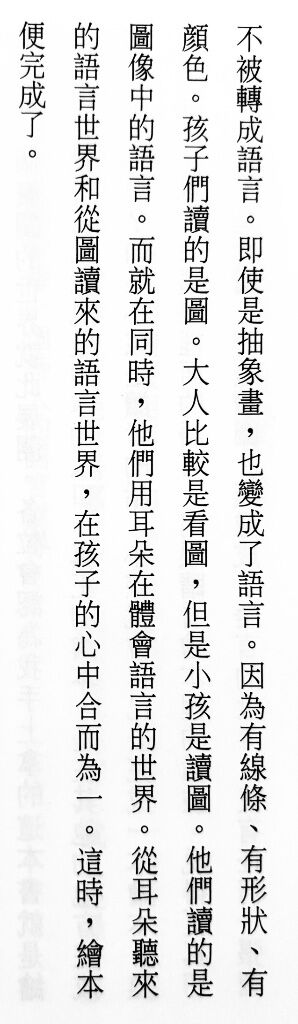 不被轉成語言。即使是抽象畫，也變成了語言。因為有線條、有形狀、有
顏色。孩子們讀的是圖。大人比較是看圖，但是小孩是讀圖。他們讀的是
圖像中的語言。而就在同時，他們用耳朵在體會語言的世界。從耳朵聽來
的語言世界和從圖讀來的語言世界，在孩子的心中合而為一。這時，繪本
便完成了。